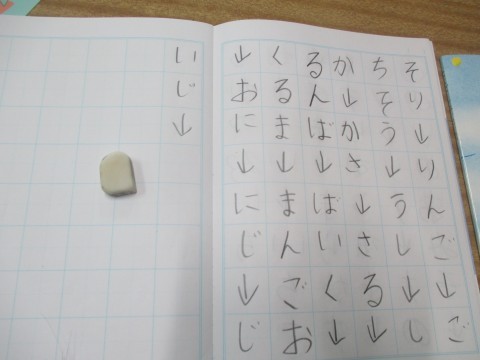 そり↓りんご↓ご
ちそう↓うし↓し
か↓かさ↓さる↓
るんば↓ばいく↓
くるま↓まんごお
↓おに↓にじ↓じ
いじ↓